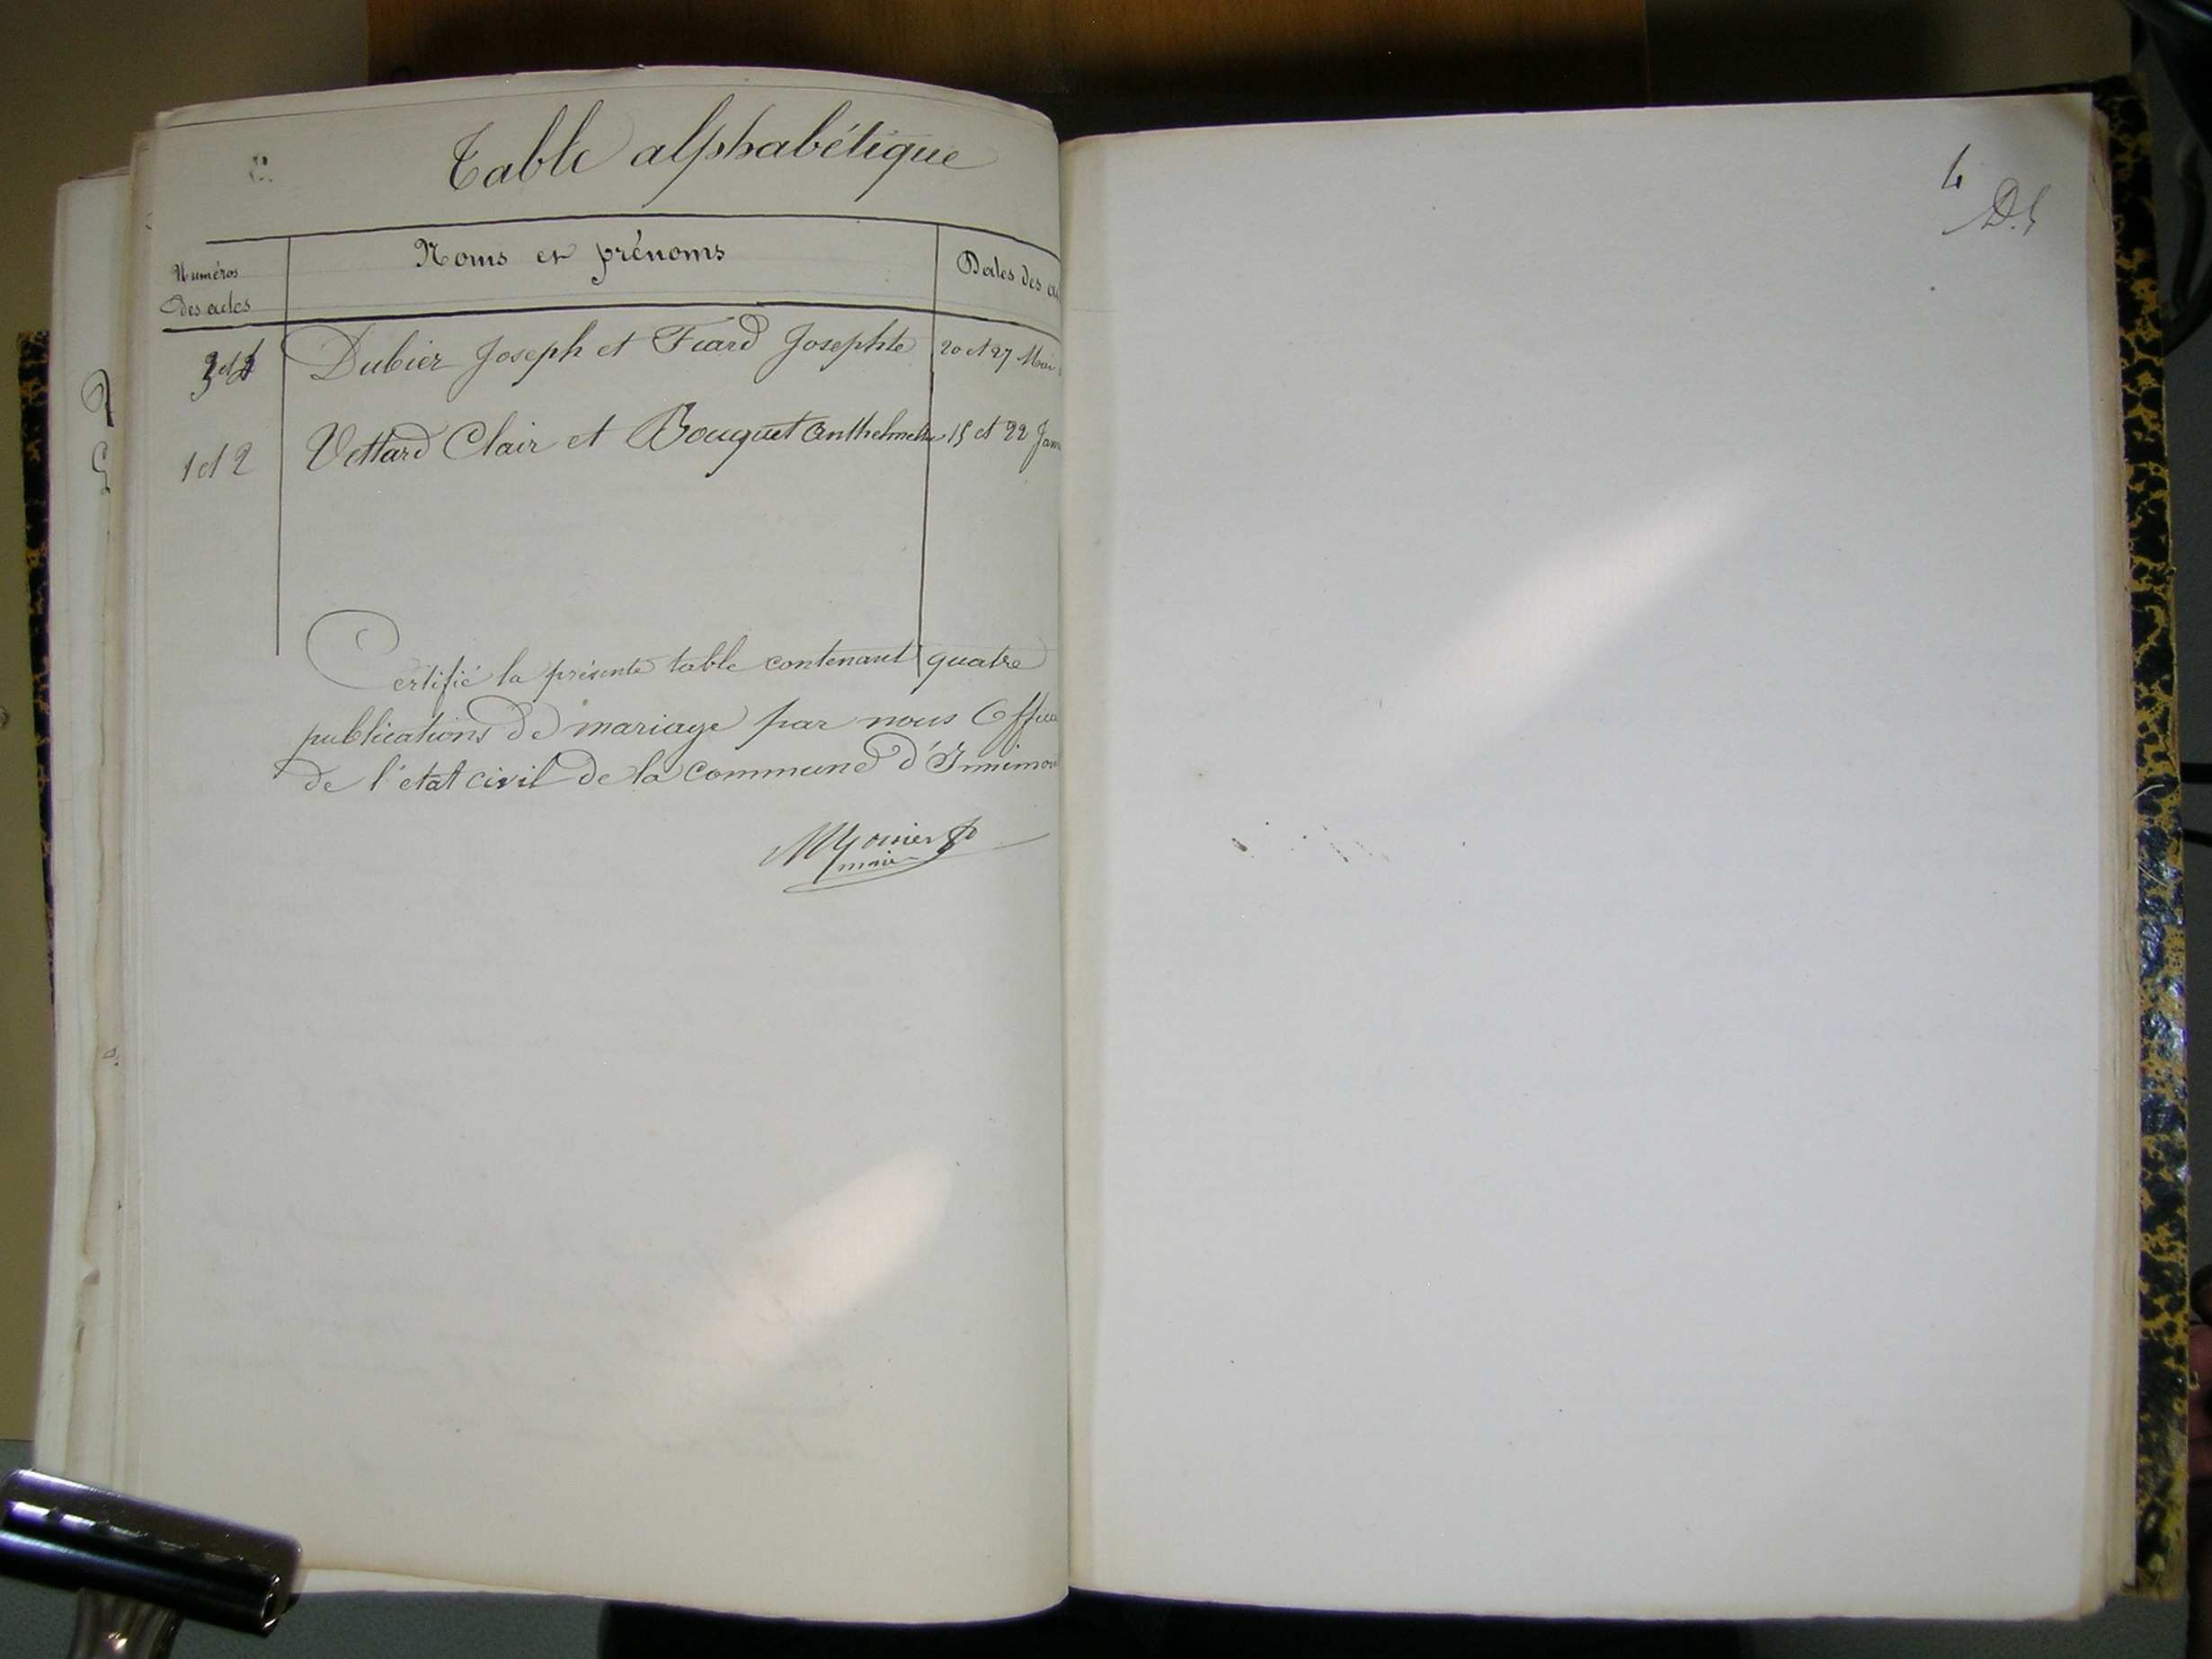 Table alphabétique
Numéros des actes
Noms et prénoms
Dates des a
3 et 4
Dubiez Joseph et Fiard Josephte
20 et 27 Mai
1 et 2
Vettard Clair et Bouquet Anthelmette
15 et 22 Jan
Certifié la présente table contenant quatre
publications de mariage par nous Offici
de l'état civil de la commune d'Innimon
maire
4